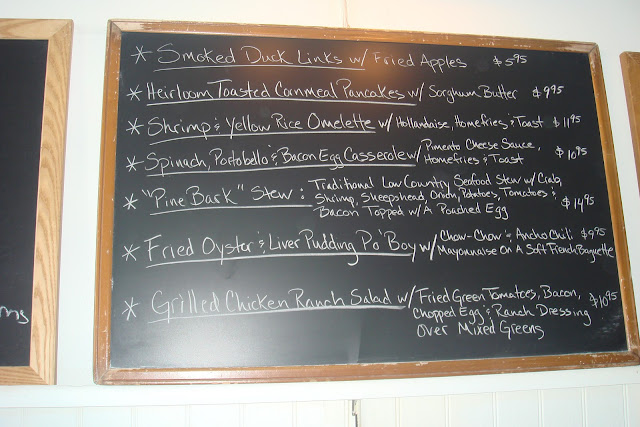 * Smoked Duck Links w/ Fried Apples $5.95
* Heirloom Toasted Cornmeal Pancakes w/ Sorghum Butter $9.95
* Shrimp & Yellow Rice Omelette w/ Hollandaise, Homefries & Toast $11.95
* Spinach, Portobello & Bacon Egg Casserole w/ Pimento Cheese Sauce,
Homefries & Toast $10.95
* "Pine Bark" Stew: Traditional Low Country Seafood Stew w/ Crab,
Shrimp, Sheepshead, Onion, Potatoes, Tomatoes &
Bacon Topped w/ A Poached Egg $14.95
* Fried Oyster & Liver Pudding Po'Boy w/ Chow-Chow & Ancho Chili $9.95
Mayonnaise On A Soft French Baguette
* Grilled Chicken Ranch Salad w/ Fried Green Tomatoes, Bacon, $10.95
Chopped Egg & Ranch Dressing
Over Mixed Greens